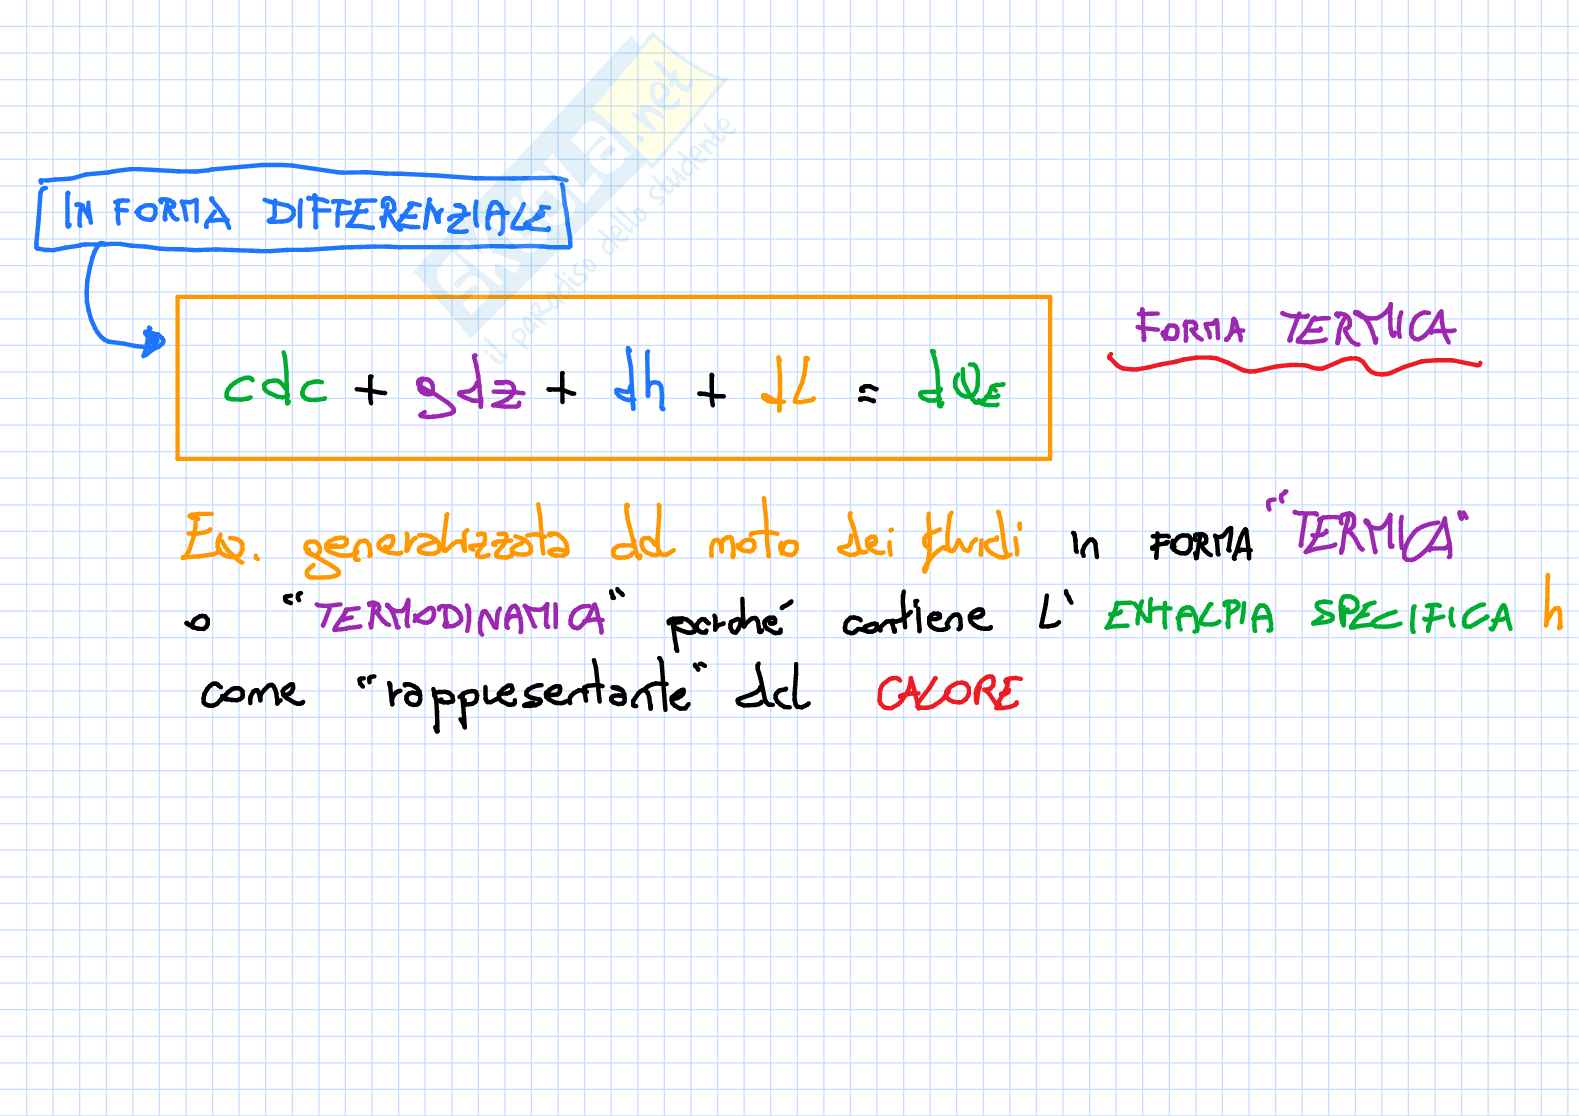 SKUOLA.net
il paradiso dello studente
IN FORMA DIFFERENZIALE
FORMA TERMICA
cdc + gdz + dh + dL = dQE
EQ. generalizzata del moto dei fluidi in FORMA "TERMICA"
o "TERMODINAMICA" perché contiene L' ENTALPIA SPECIFICA h
come "rappresentante" del CALORE